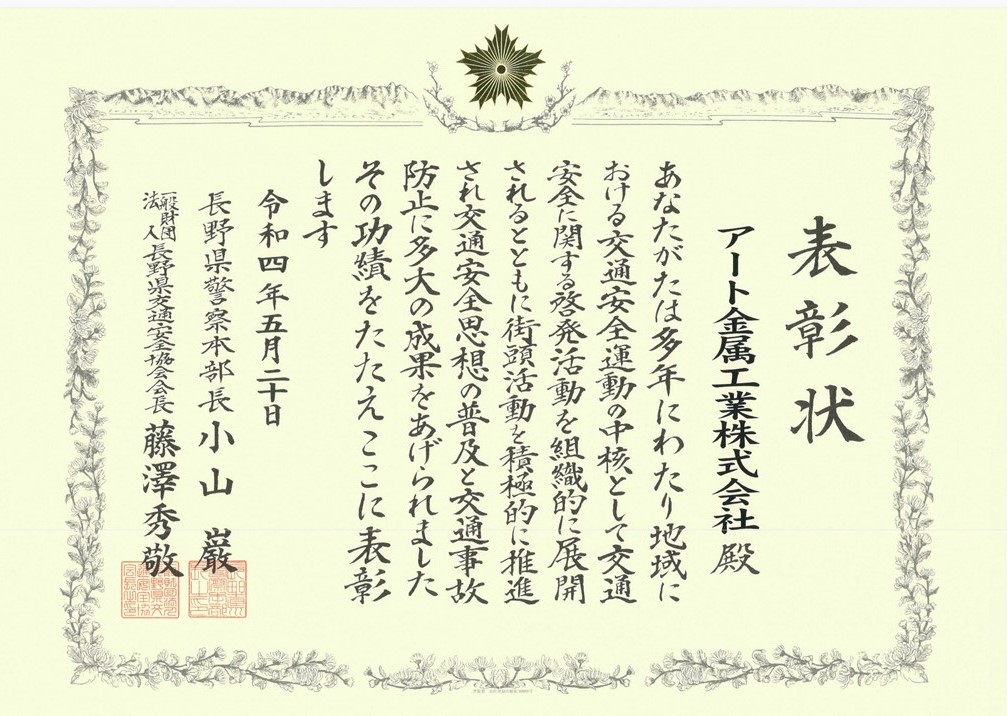 表彰状
アート金属工業株式会社 殿
あなたがたは多年にわたり地域に
おける交通安全運動の中核として交通
安全に関する啓発活動を組織的に展開
されるとともに街頭活動を積極的に推進
され交通安全思想の普及と交通事故
防止に多大の成果をあげられました
その功績をたたえここに表彰
します
令和四年五月二十日
長野県警察本部長 小山 巌
一般財団法人 長野県交通安全協会会長 藤澤秀敬